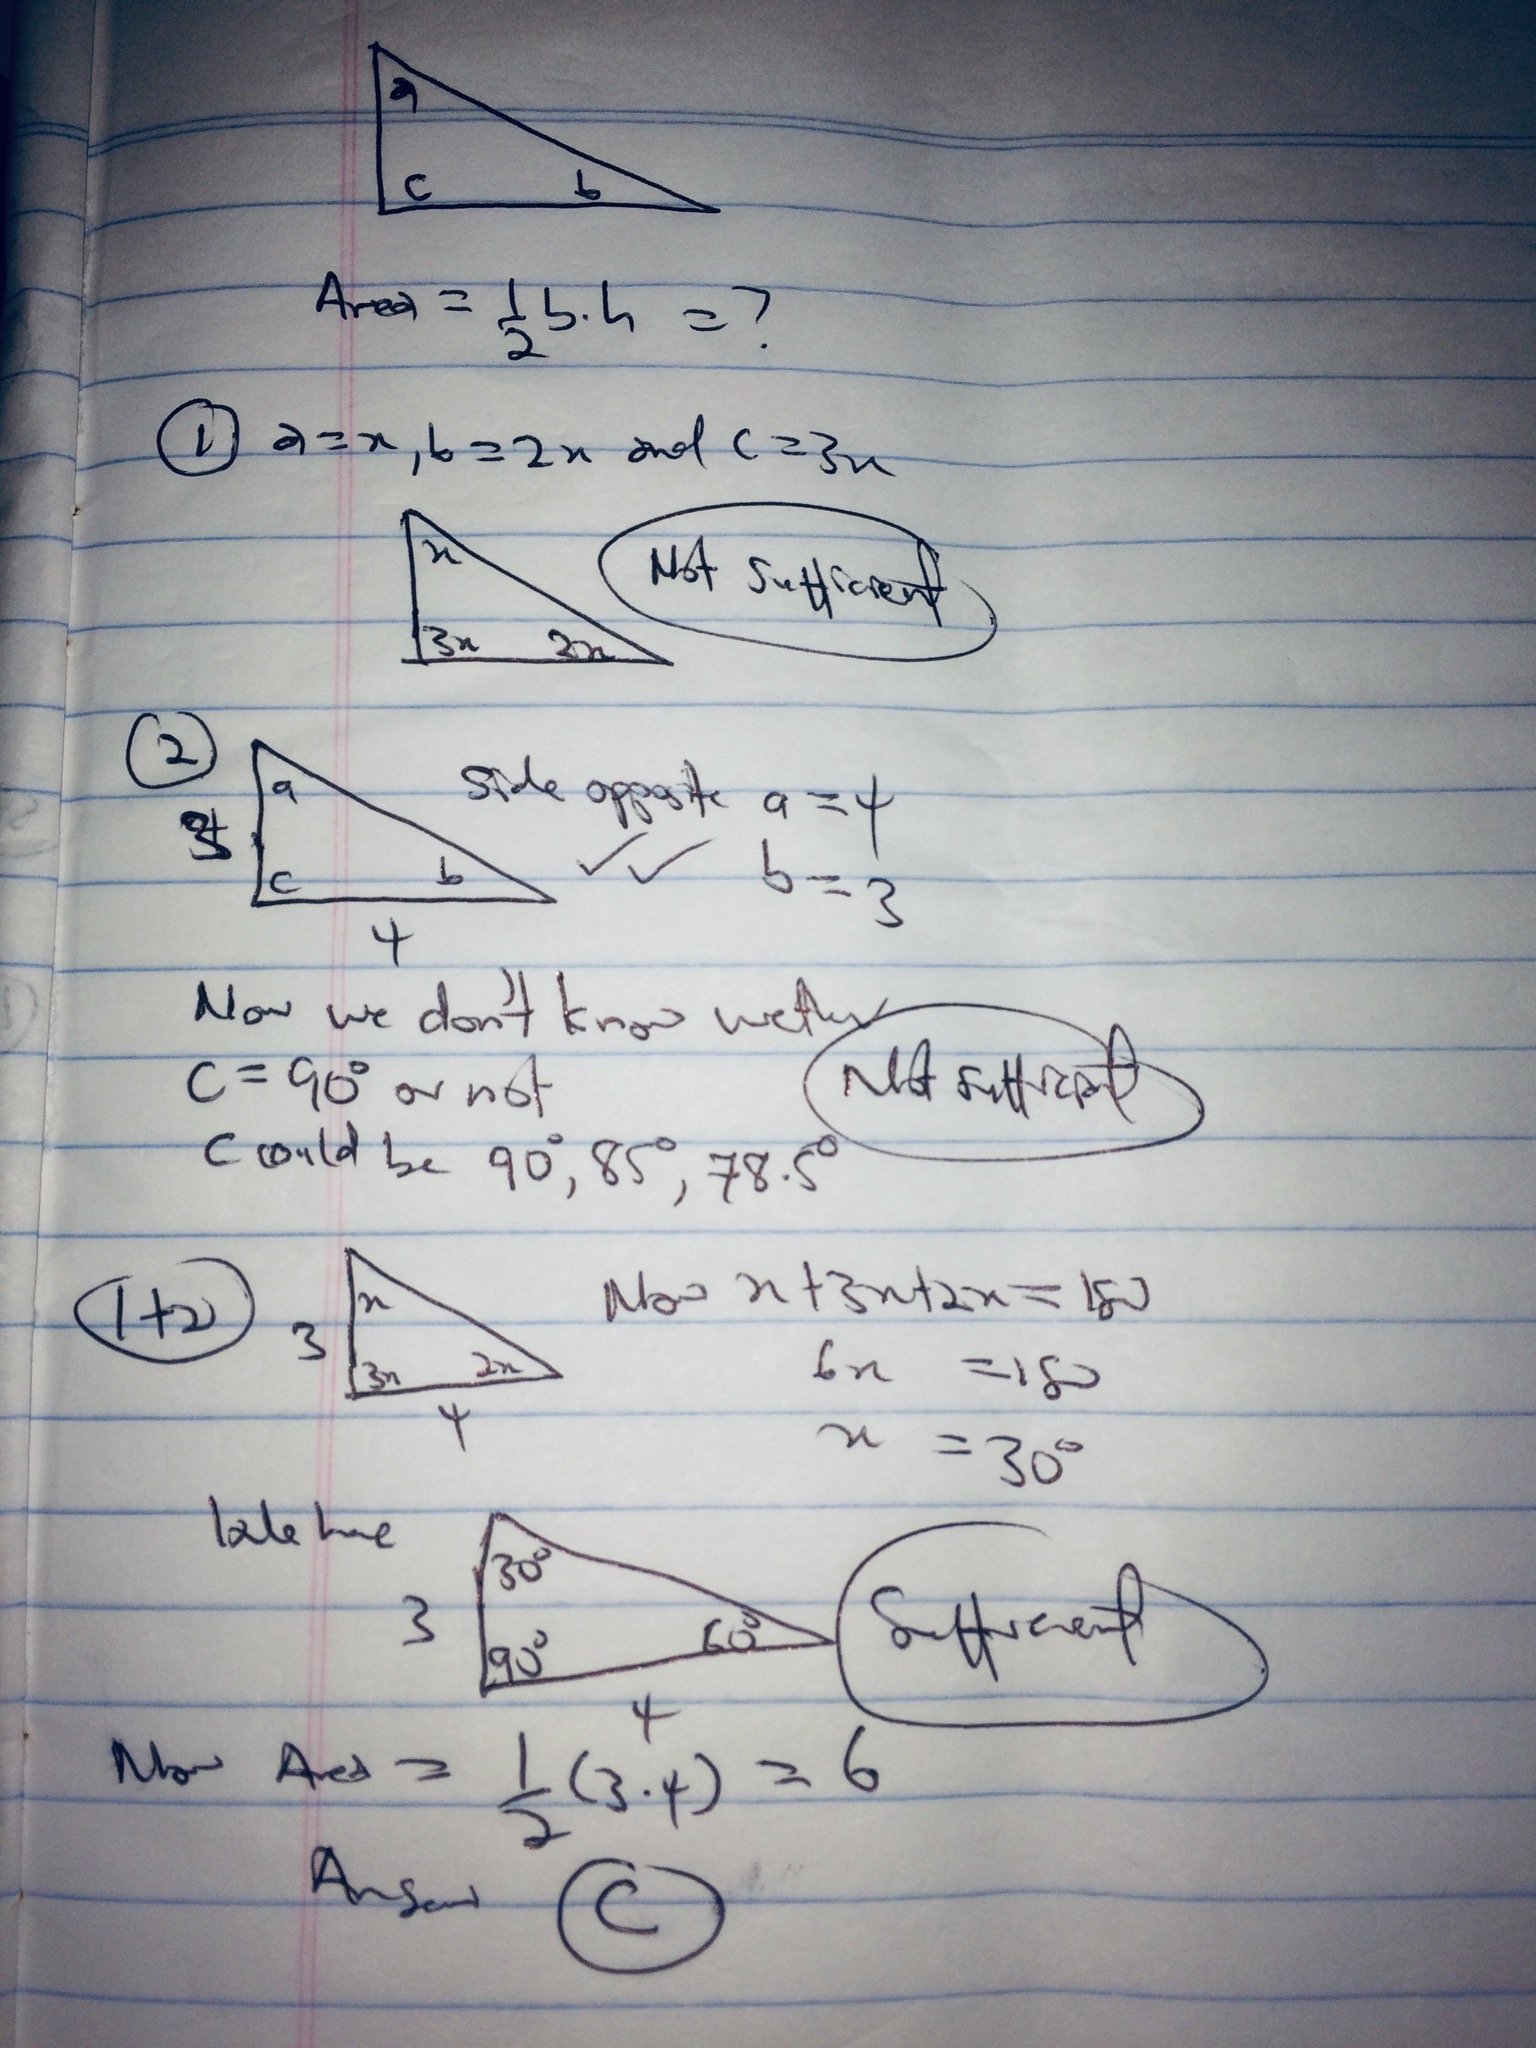 a
c b
Area = 1/2 b.h = ?
① a=x, b=2x and c=3x
x
Not Sufficient
3x 2x
②
a
side opposite a=4
3
c b
b=3
4
Now we don't know wether
C=90° or not
Not sufficient
C could be 90°, 85°, 78.5°
1+2
x
3
3x 2x
4
Now x+3x+2x=180
6x =180
x =30°
30°
3
90° 60°
Sufficient
4
Now Area = 1/2 (3.4) = 6
Answer C